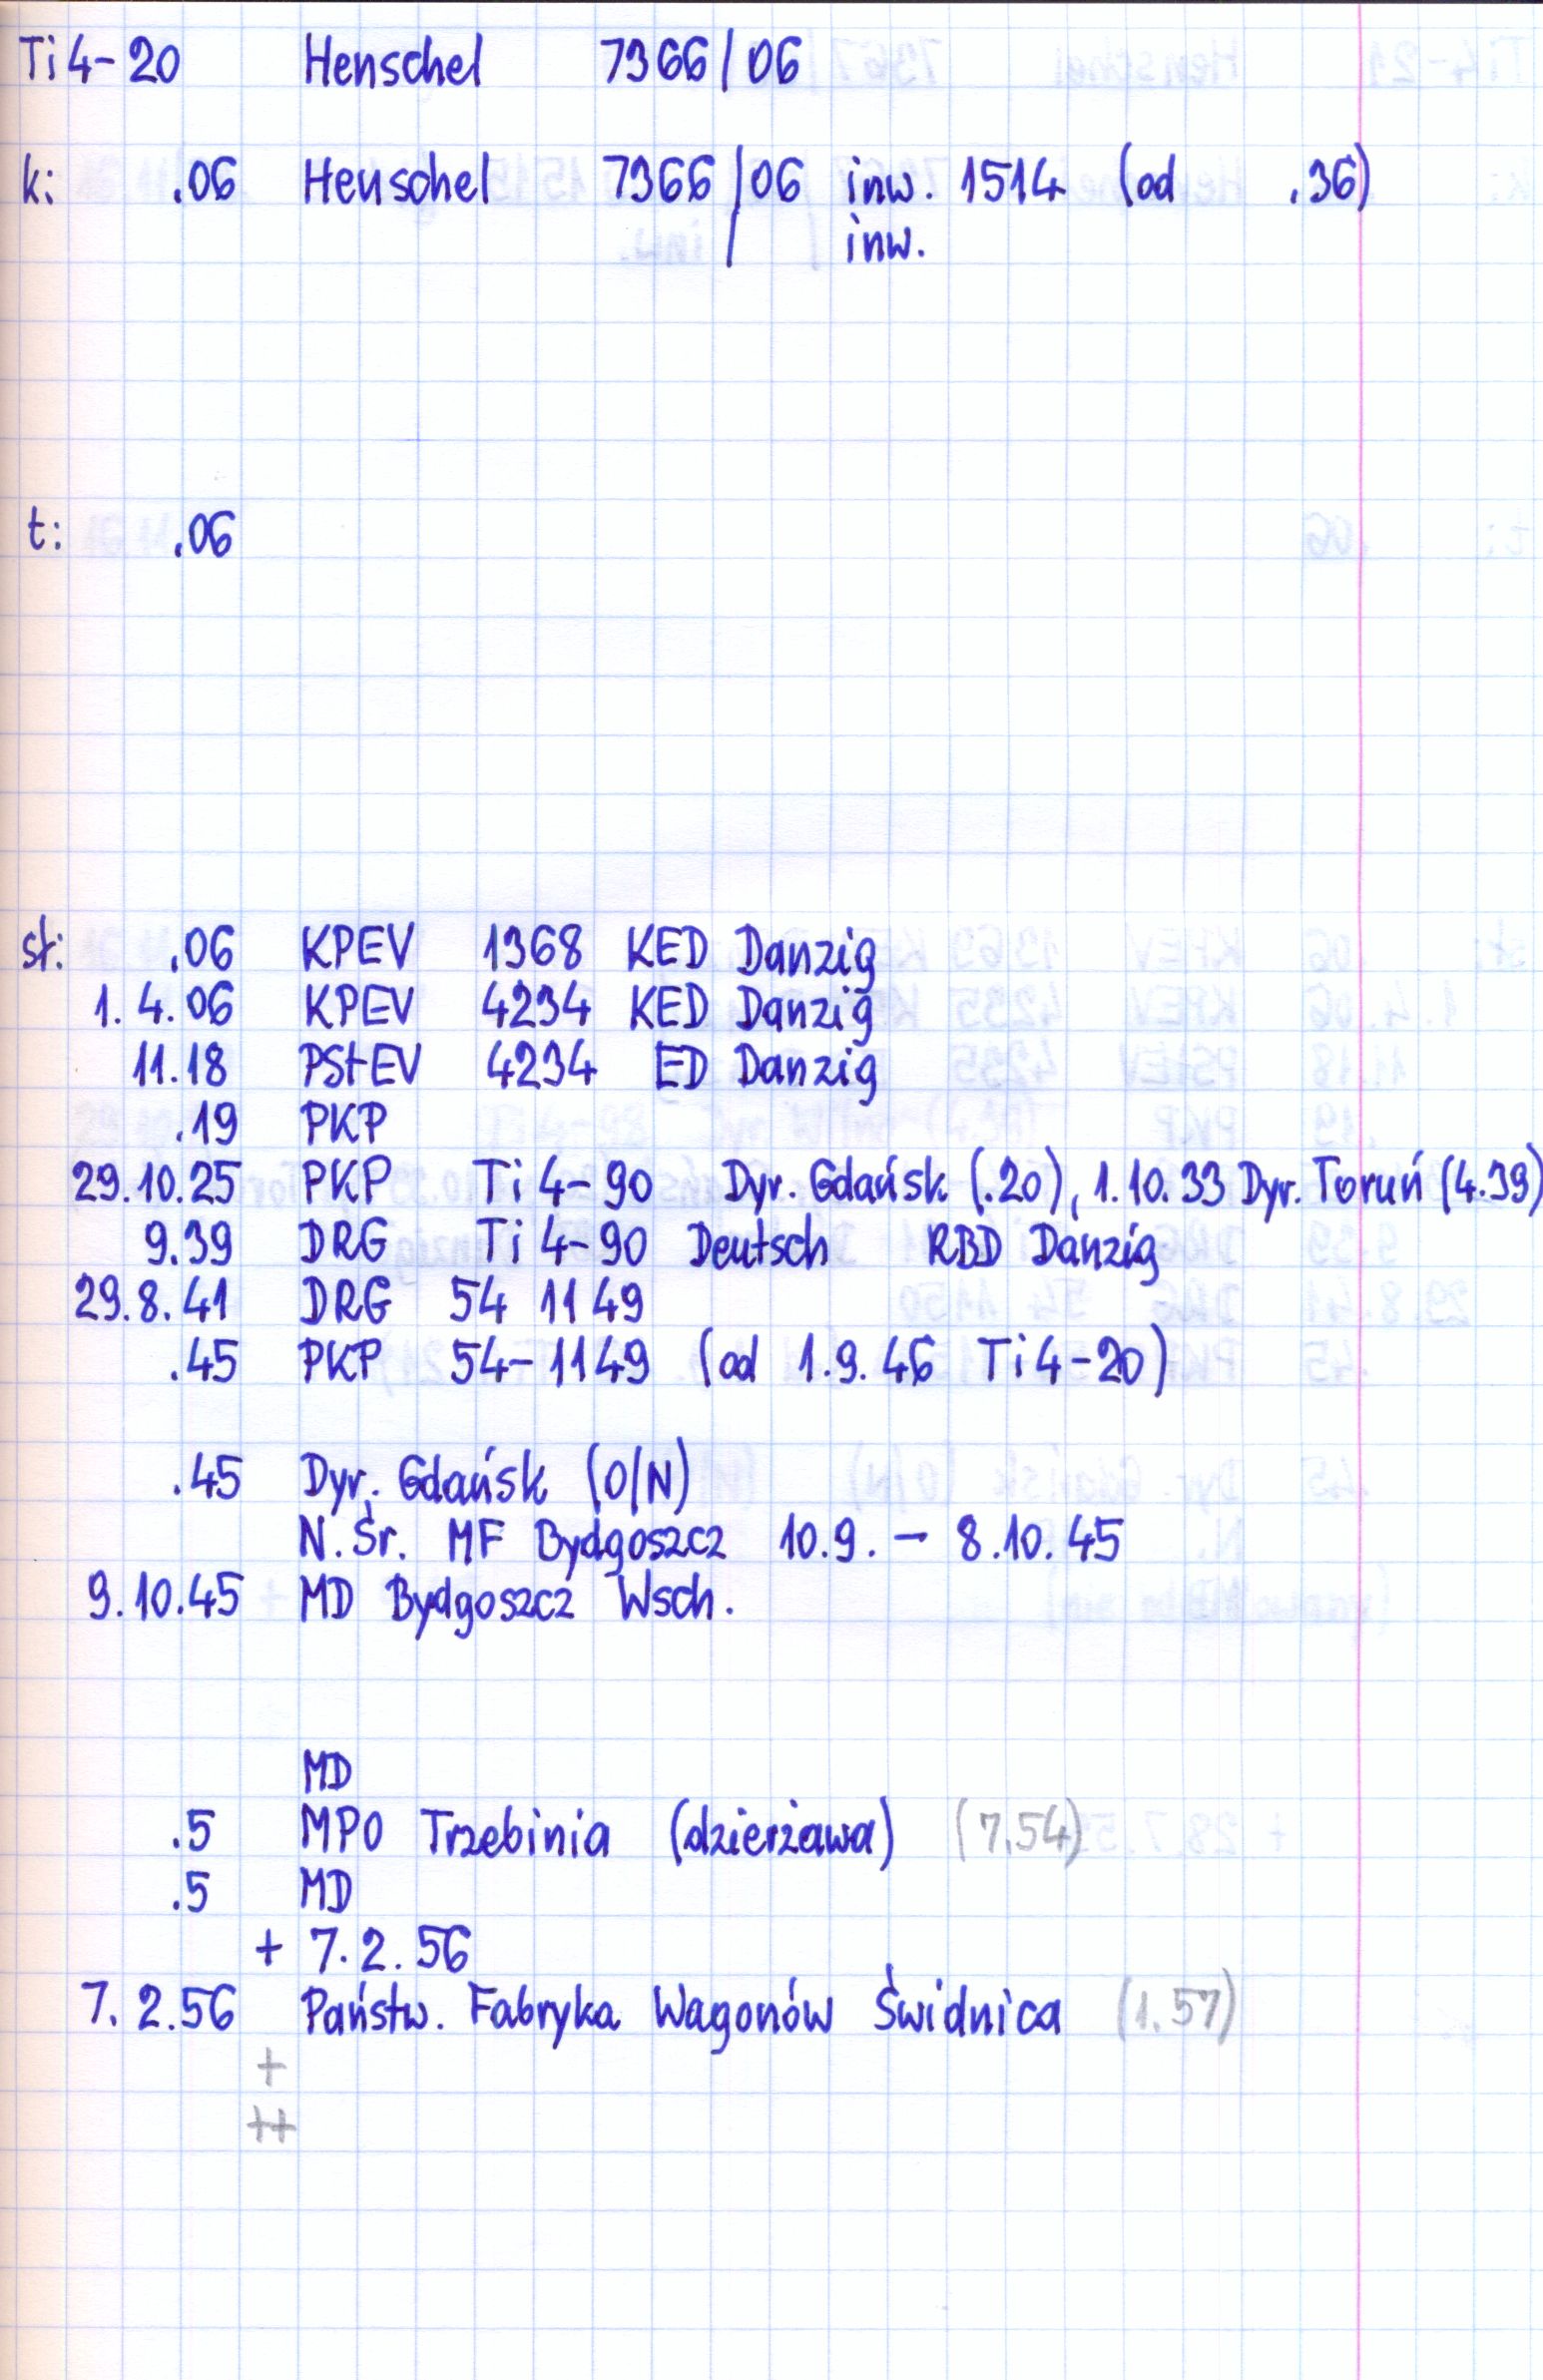 Ti4-20 Henschel 7366/06
k: .06 Henschel 7366/06 inw. 1514 (od .36)
/ inw.
t: .06
st: .06 KPEV 1368 KED Danzig
1.4.06 KPEV 4234 KED Danzig
11.18 PStEV 4234 ED Danzig
.19 PKP
29.10.25 PKP Ti4-90 Dyr. Gdańsk (.20), 1.10.33 Dyr. Toruń (4.39)
9.39 DRG Ti4-90 Deutsch RBD Danzig
29.8.41 DRG 54 1149
.45 PKP 54-1149 (od 1.9.46 Ti4-20)
.45 Dyr. Gdańsk (O/N)
N.Śr. MF Bydgoszcz 10.9. - 8.10.45
9.10.45 MD Bydgoszcz Wsch.
MD
.5 MPO Trzebinia (dzierżawa) (7.54)
.5 MD
+ 7.2.56
7.2.56 Państw. Fabryka Wagonów Świdnica (1.57)
+
++